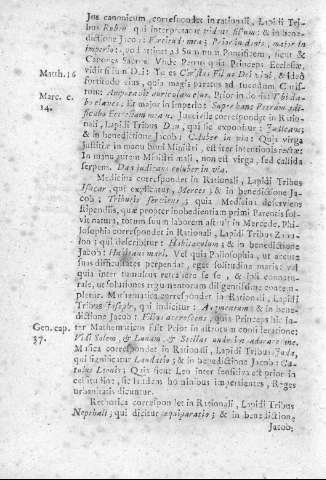 Jus canonicum, correspondet in rationali, Lapidi Tri-
bus Ruben qui interpretatur videns filium: & in bene-
dictione Jacob: Fortitudo mea; Prior in donis, major in
imperio:
Caporea Sacra. Unde Petrus quia Princeps Ecclesiæ,
Vidit filium Dei: Tu es Christus Filius Dei vivi, & ideò
Matth. 16
fortitudo ejus, quia magis paratus ad tuendum Chris-
tum: Amputavit auriculam ejus. Prior in donis: Tibi da-
Marc. c.
14.
bo claves. Et major in imperio: Super hanc Petram ædi-
ficabo Ecclesiam meam. Jus civile correspondet in Ratio-
nali, Lapidi Tribus Dan, qui sic exponitur: Judicans;
& in benedictione Jacob: Coluber in via: Quia virga
justitiæ in manu boni Ministri, est iter intentionis rectæ:
In manu autem Ministri mali, non est virga, sed callida
serpens. Dan judicans coluber in via.
Medicina correspondet in Rationali, Lapidi Tribus
Isacar, qui explicatur, Merces; & in benedictione Ja-
cob; Tributis serviens; quia Medicina deserviens
stipendiis, quæ propter inobedientiam primi Parentis sol-
vit natura, totum suum laborem assuit in Mercede. Phi-
losophia correspondet in Rationali, Lapidi Tribus Zabu-
lon; qui describitur: Habitaculum; & in benedictione
Jacob: Habitans mari. Vel quia Philosophia, ut accura-
tius difficultates perpendat, eget solitudine maris: vel
quia inter tumultus
rale, ut solutiones argumentorum diligentissime contem-
pletur. Mathematica correspondet in Rationali, Lapidi
Tribus Joseph, qui indicitur: Augmentum & in bene-
dictione Jacob: Filius accrescens, quia Princeps his in-
Gen. cap.
37.
ter Mathematicos Fuit Prior in astrorum consideratione:
Vidi Solem, & Lunam, & Stellas undecim adorare me.
Musica correspondet in Rationali, Lapidi Tribus Juda,
qui significatur Laudatio; & in benedictione Jacob: Ca-
tulus Leonis; Quia sicut Leo inter sensitiva est prior in
celsitudine, sic laudem hominibus impertientes, Reges
urbanitatis dicuntur.
Rethorica correspondet in Rationali, Lapidi Tribus
Nepthali; qui dicitur æquiparatio; & in benedictione
Jacob,